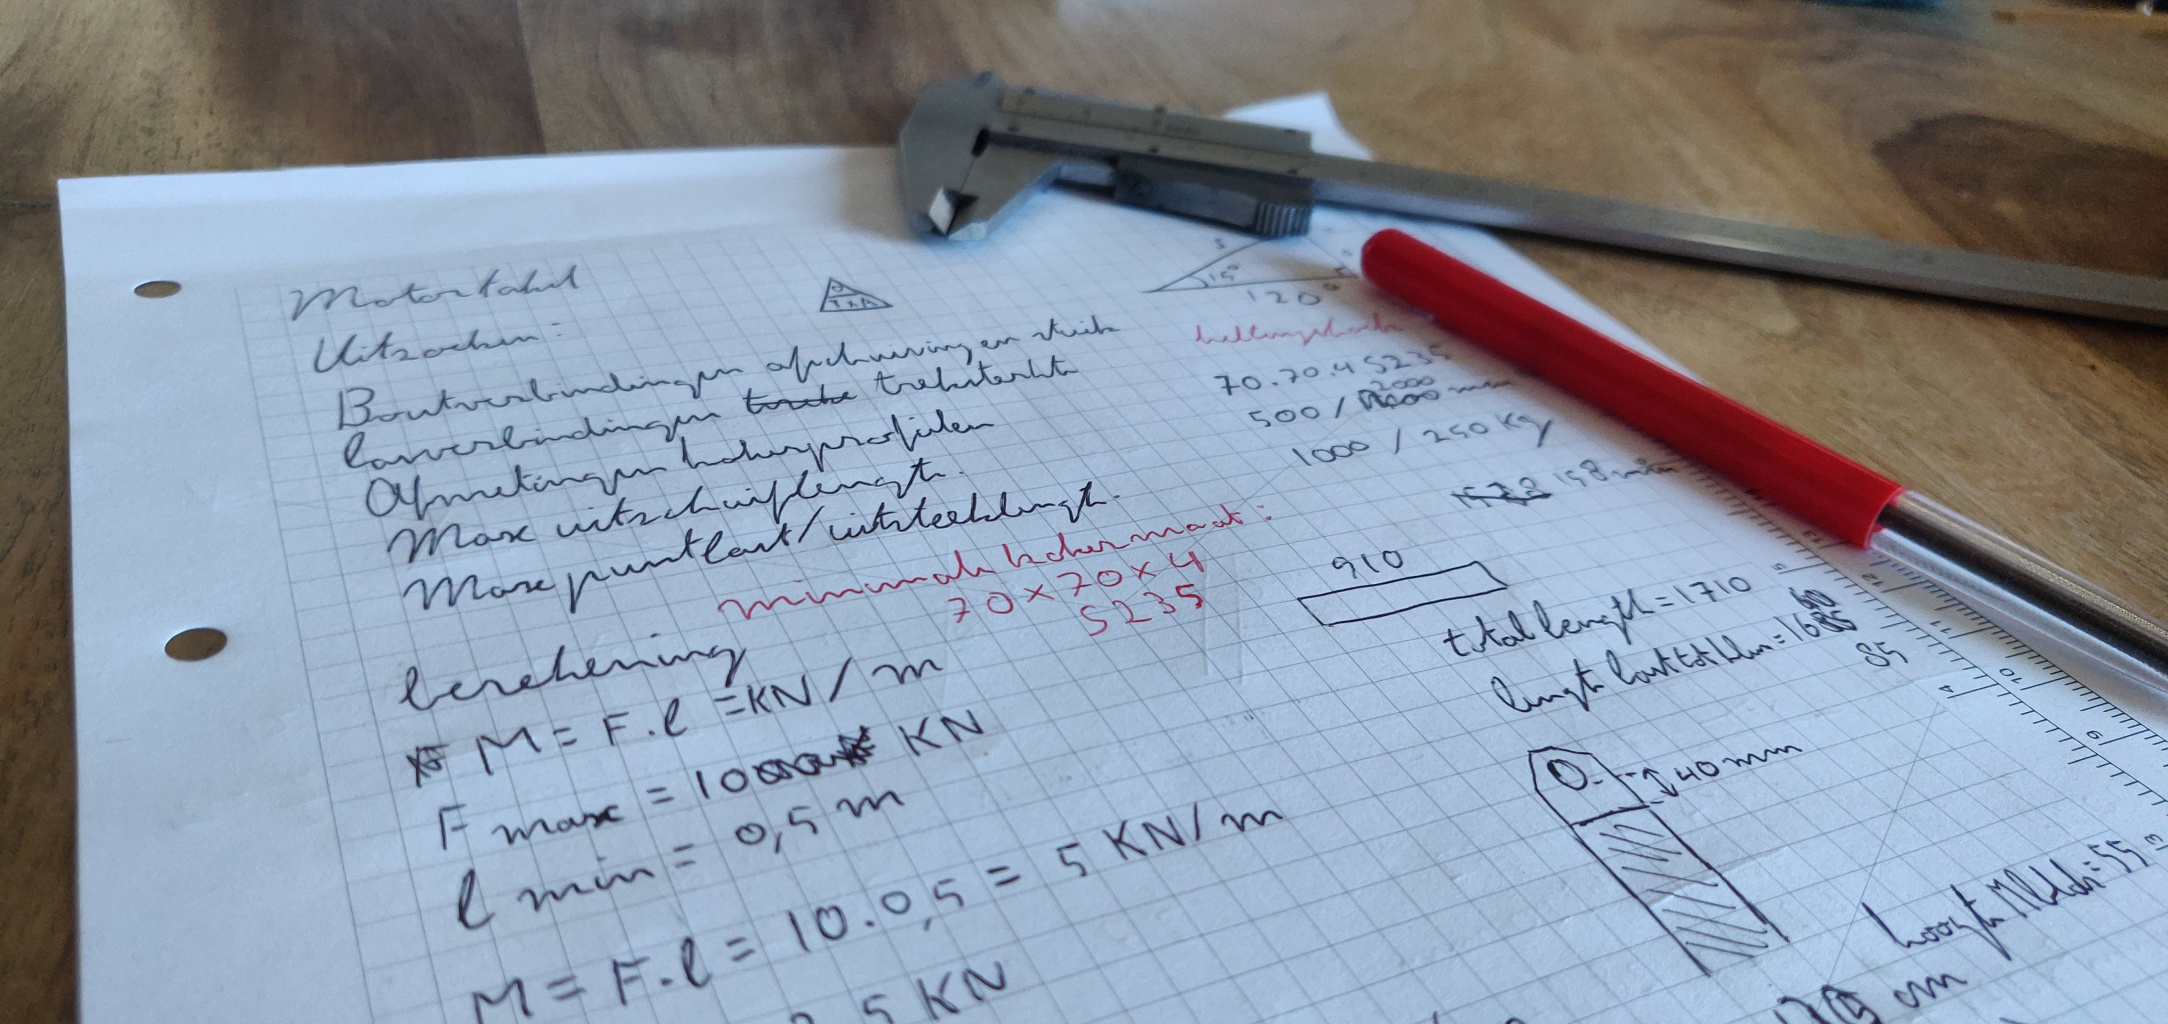 Motortakel
Uitzoeken:
Boutverbindingen afschuiving en stuik
lasverbindingen treksterkte
Afmetingen kokerprofielen
Max uitschuiflengte.
Max puntlast/uitsteeklengte.
minimale kokermaat:
70x70x4
S235
berekening
M = F.l = KN/m
F max = 10 KN
l min = 0,5 m
M = F.l = 10.0,5 = 5 KN/m
5 KN
15°
120°
hellingshoek
70.70.4 S235
500 / 2000 mm
1000 / 250 Kg
158 mm
910
total length = 1710
85
40 mm
hoogte
cm